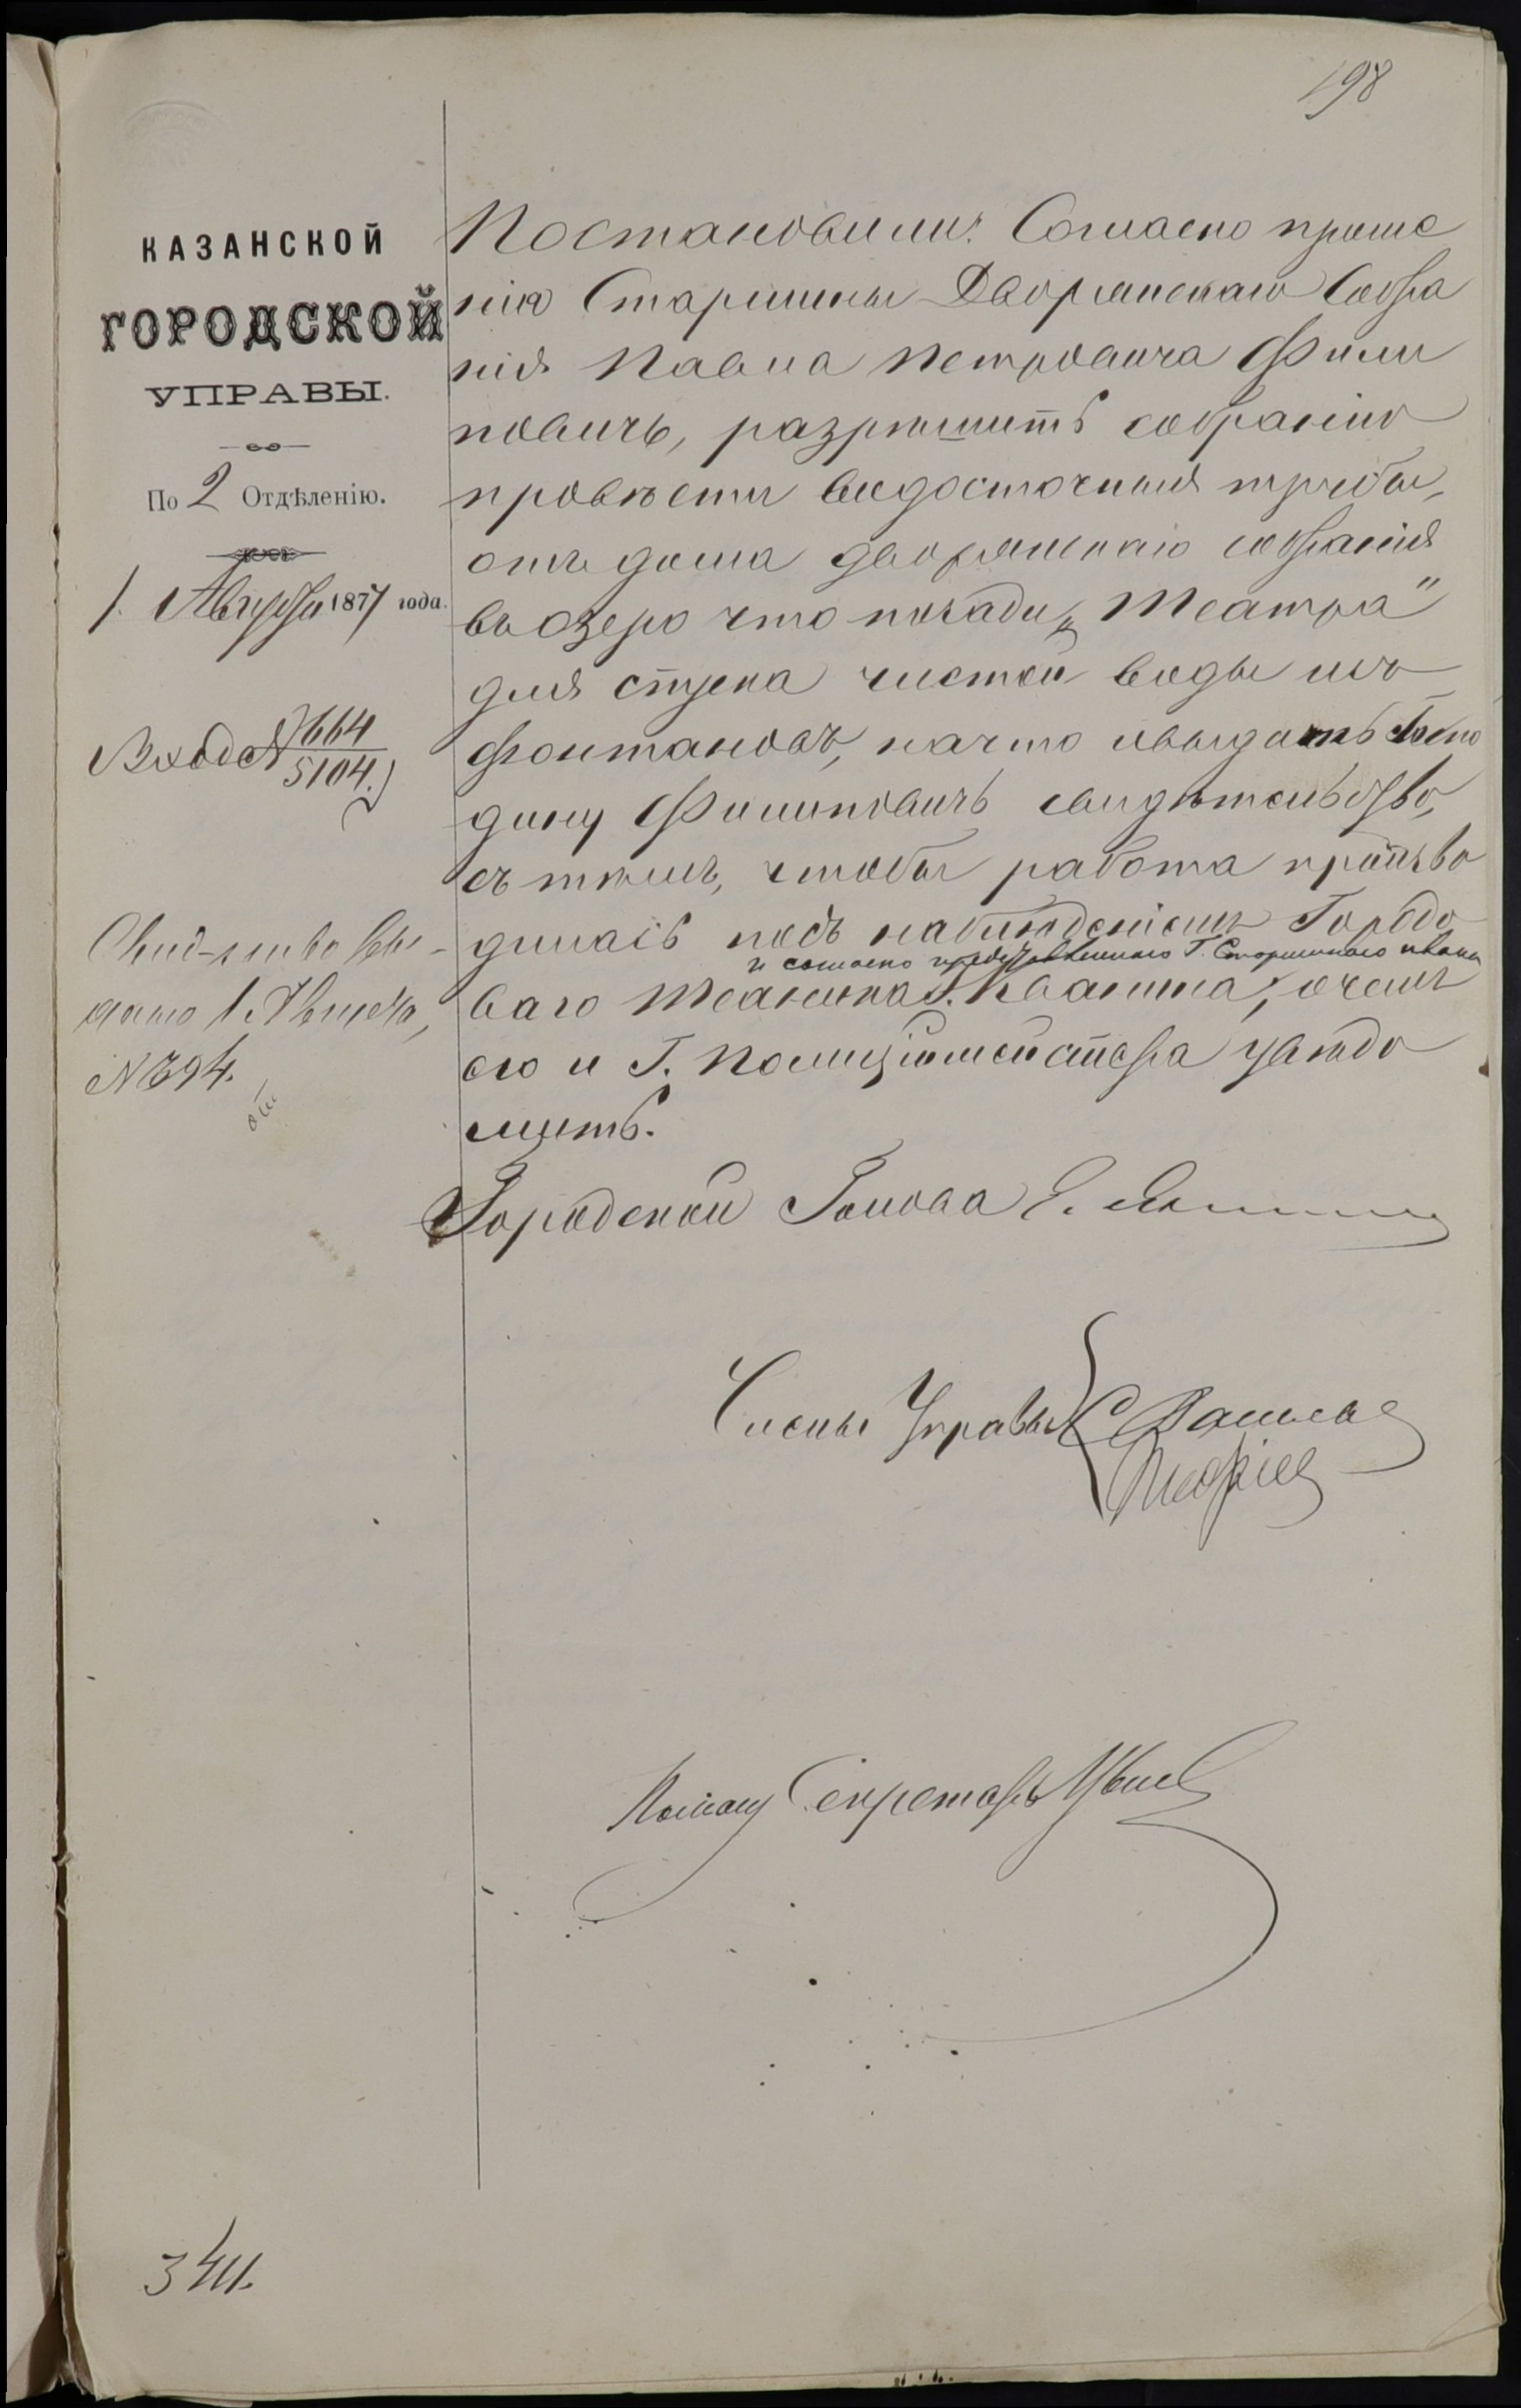 198
КАЗАНСКОЙ
ГОРОДСКОЙ
УПРАВЫ.
По 2 Отдѣленію.
1. Августа 1877 года.
Вход № 664
5104.
Свид-льство вы-
дано 1. Августа,
№ 394.
Постановили: Согласно проше
нію Старшины Дворянскаго Собра
нія Павла Петровича Фили
повичъ, разрѣшить собранію
провѣсти водосточныя трубы,
отъ дома дворянскаго собранія
въ озеро что позади „Театра"
для стока чистой воды изъ
фонтановъ, на что и выдать Госпо
дину Филиповичъ свидѣтельство,
съ тѣмъ, чтобы работа произво
дилась подъ наблюденіемъ Городо
и согласно представленнаго Г. Старшиною плана
ваго Техника Г. Кванта, о чемъ
его и Г. Полиціймейстера увѣдо
мить.
Городской Голова Э. Янишевскій
Члены Управы
Секретарь
341.